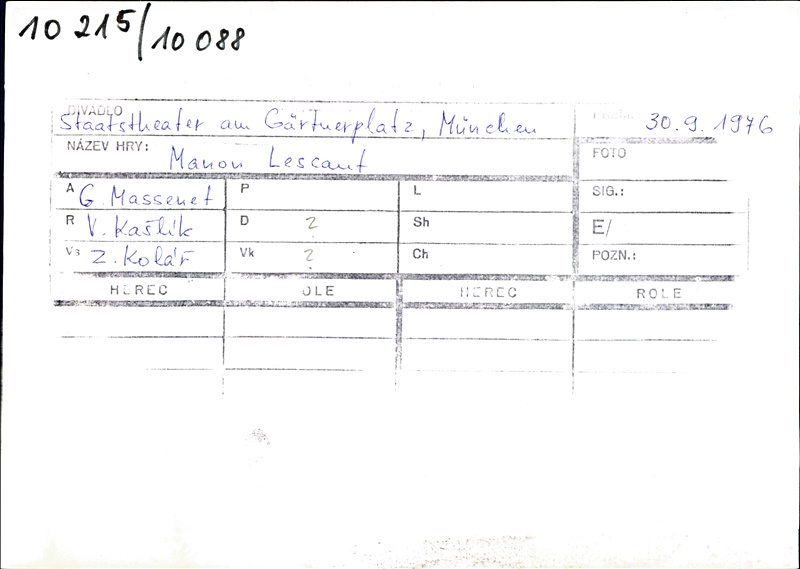 10 215/10 088
DIVADLO
Staatstheater am Gärtnerplatz, München
30.9.1976
NÁZEV HRY:
Manon Lescaut
FOTO
A G. Massenet
P
L
SIG.:
R V. Kašlík
D ?
Sh
E/
Vs Z. Kolář
Vk ?
Ch
POZN.:
HEREC
OLE
HEREC
ROLE